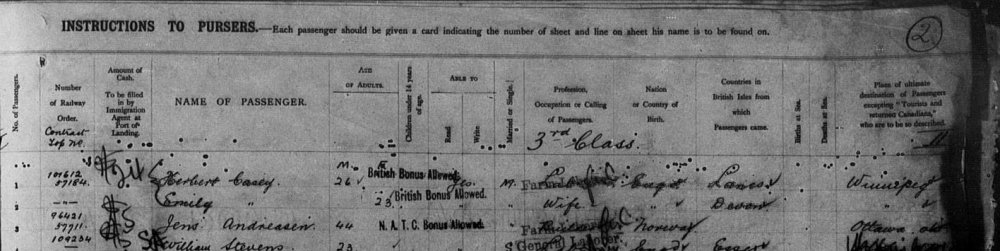 INSTRUCTIONS TO PURSERS.—Each passenger should be given a card indicating the number of sheet and line on sheet his name is to be found on.
2
No. of Passengers.
Number of Railway Order.
Contract
Amount of Cash. To be filled in by Immigration Agent at Port of Landing.
NAME OF PASSENGER.
AGE OF ADULTS.
Children under 14 years of age.
ABLE TO
Read
Write
Married or Single.
Profession, Occupation or Calling of Passengers.
Nation or Country of Birth.
Countries in British Isles from which Passengers came.
Births at Sea.
Deaths at Sea.
Place of ultimate destination of Passengers excepting "Tourists and returned Canadians," who are to be so described.
3rd Class.
M. F.
1 101612 57184 Herbert Casey 26 British Bonus Allowed. Yes M. Engd Lancs Winnipeg
2 Emily " 23 British Bonus Allowed. Wife " Devon "
3 96421 57911 Jens Andreassen 44 N. A. T. C. Bonus Allowed. Norway Ottawa
109234 William Stevens 23 " S General Labourer " Essex